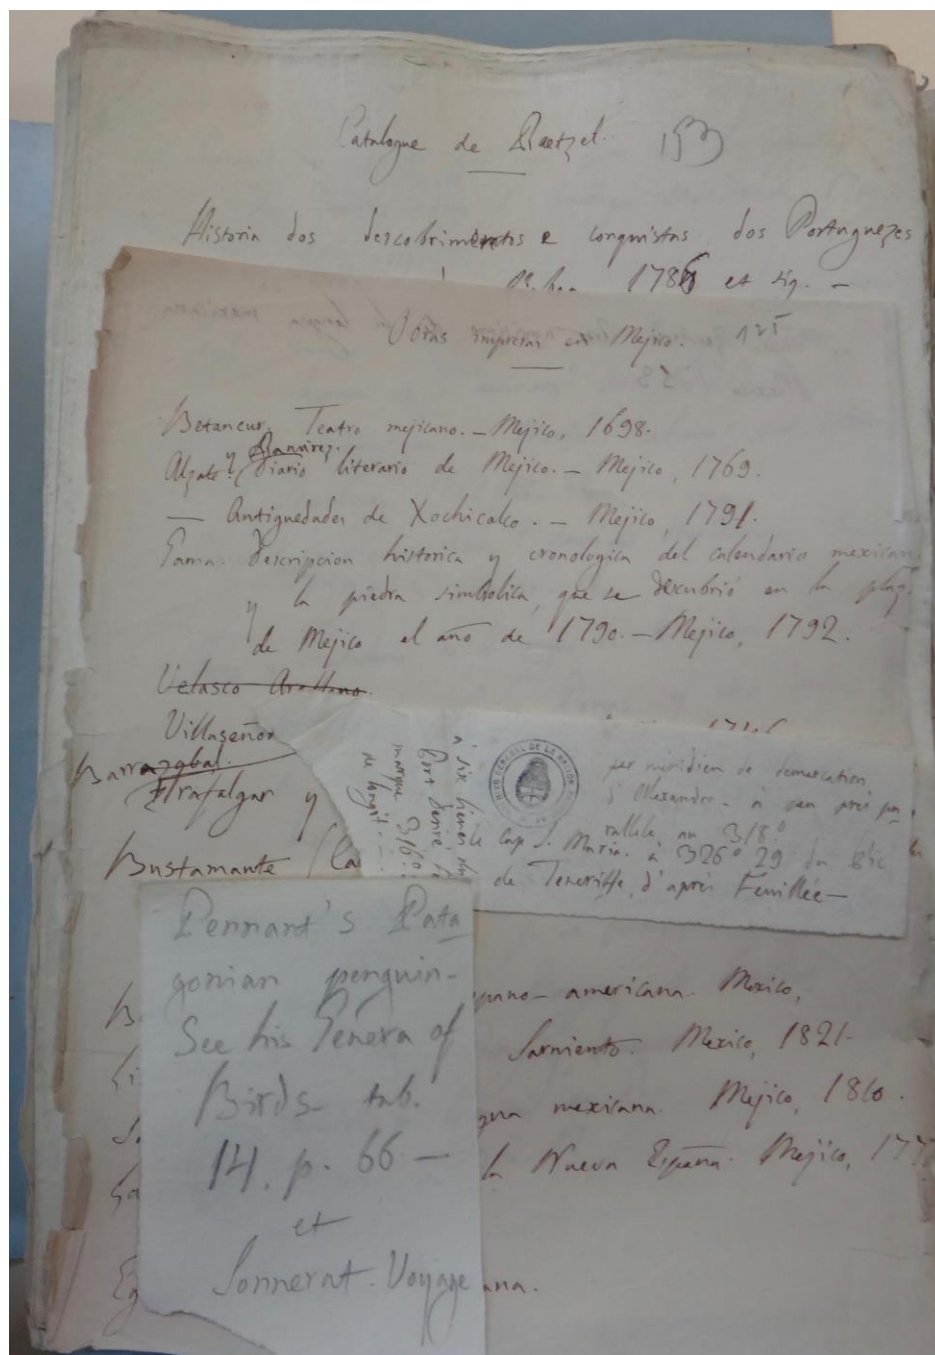 Catalogue de Raetzel. 153
Historia dos descobrimentos e conquistas dos Portuguezes
1786 et sig. -
Obras impresas en Mejico. 125
Betancur. Teatro mejicano. - Mejico, 1698.
Alzate y Ramirez. Diario literario de Mejico. - Mejico, 1769.
— Antiguedades de Xochicalco. - Mejico, 1791.
Gama. Descripcion historica y cronologica del calendario mexicano
y la piedra simbolica, que se descubrió en la plaz
de Mejico el año de 1790. - Mejico, 1792.
Velasco Arellano.
Villaseñor
Barrazabal.
Trafalgar y
Bustamante (la
à six lieues du
Port Desiré
marque 316°
de longit.
per méridien de demarcation
d'Alexandre - à peu près pa-
rallele au 318°
le cap S. Maria. à 326° 29
de Teneriffe, d'après Feuillée -
Pennant's Pata
gonian penguin-
See his Genera of
Birds tab.
14. p. 66 -
et
Sonnerat. Voyage
pano-americana. Mexico,
Sarmiento. Mexico, 1821.
gua mexicana. Mejico, 1810.
la Nueva España. Mejico, 177
ana.